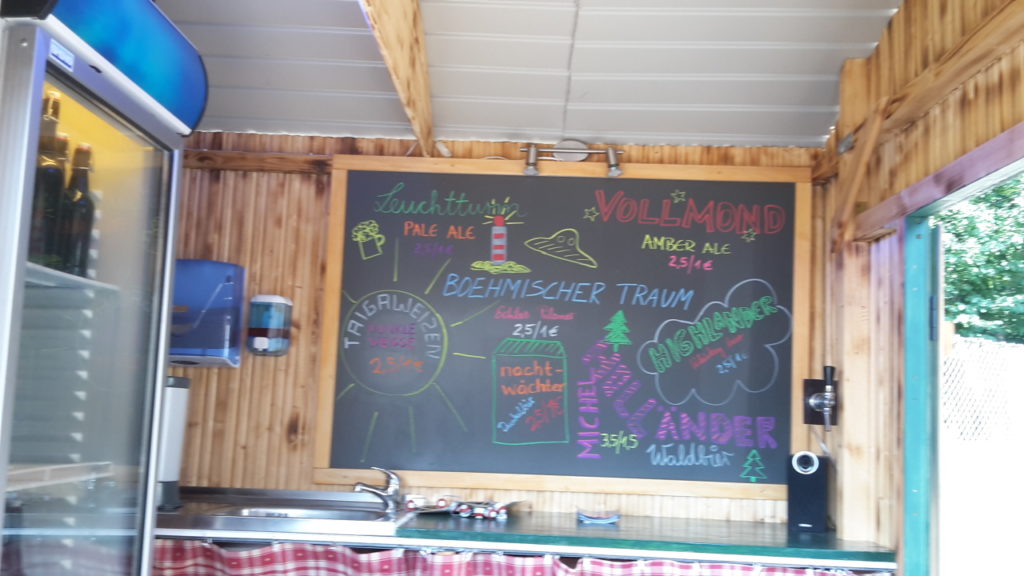 Leuchtturm
PALE ALE
2,5/1€
VOLLMOND
AMBER ALE
2,5/1€
BOEHMISCHER TRAUM
Echtes Pilsner
2,5/1€
TAIGAWEIZEN
2,5/1€
nacht-
wächter
Dunkelbier
2,5/1€
HIGHLANDER
2,5/1€
MICHEL
LÄNDER
3,5/1,5
Waldbier